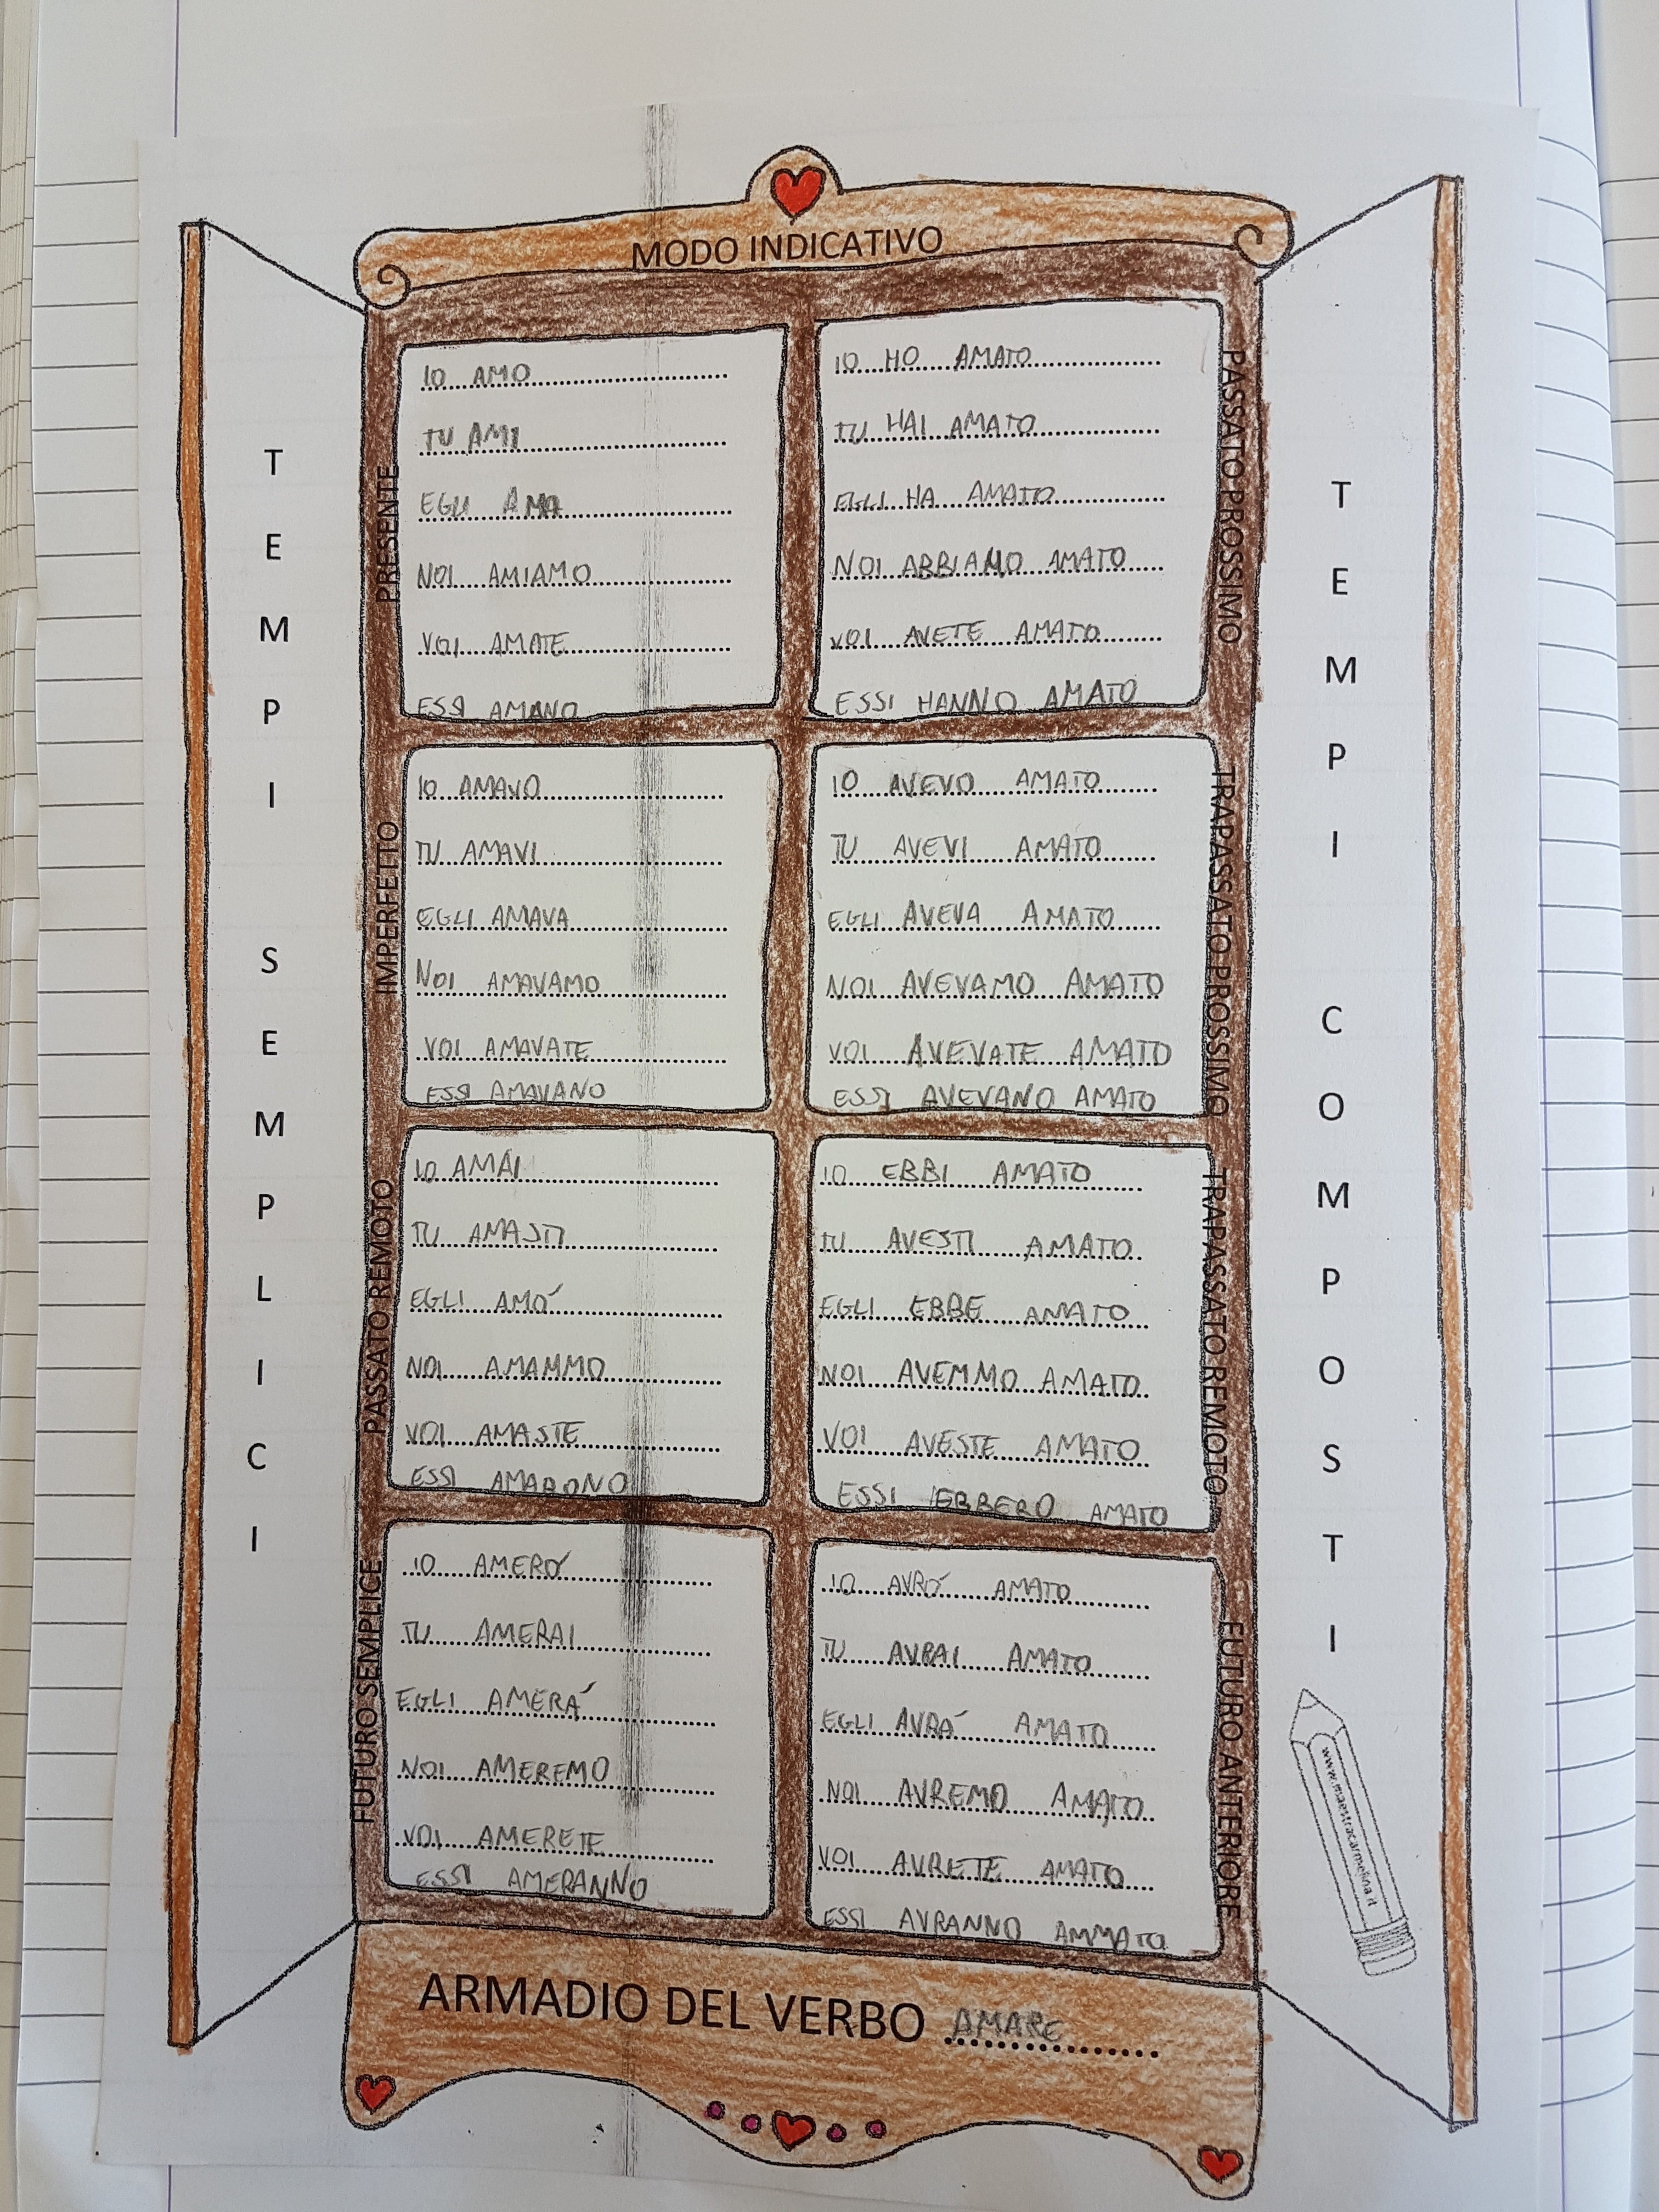 MODO INDICATIVO
TEMPI SEMPLICI
PRESENTE
IO AMO
TU AMI
EGLI AMA
NOI AMIAMO
VOI AMATE
ESSI AMANO
IMPERFETTO
IO AMAVO
TU AMAVI
EGLI AMAVA
NOI AMAVAMO
VOI AMAVATE
ESSI AMAVANO
PASSATO REMOTO
IO AMAI
TU AMASTI
EGLI AMÓ
NOI AMAMMO
VOI AMASTE
ESSI AMARONO
FUTURO SEMPLICE
IO AMERÓ
TU AMERAI
EGLI AMERÁ
NOI AMEREMO
VOI AMERETE
ESSI AMERANNO
TEMPI COMPOSTI
PASSATO PROSSIMO
IO HO AMATO
TU HAI AMATO
EGLI HA AMATO
NOI ABBIAMO AMATO
VOI AVETE AMATO
ESSI HANNO AMATO
TRAPASSATO PROSSIMO
IO AVEVO AMATO
TU AVEVI AMATO
EGLI AVEVA AMATO
NOI AVEVAMO AMATO
VOI AVEVATE AMATO
ESSI AVEVANO AMATO
TRAPASSATO REMOTO
IO EBBI AMATO
TU AVESTI AMATO
EGLI EBBE AMATO
NOI AVEMMO AMATO
VOI AVESTE AMATO
ESSI EBBERO AMATO
FUTURO ANTERIORE
IO AVRÓ AMATO
TU AVRAI AMATO
EGLI AVRÁ AMATO
NOI AVREMO AMATO
VOI AVRETE AMATO
ESSI AVRANNO AMMATO
www.maestracarmelina.it
ARMADIO DEL VERBO AMARE